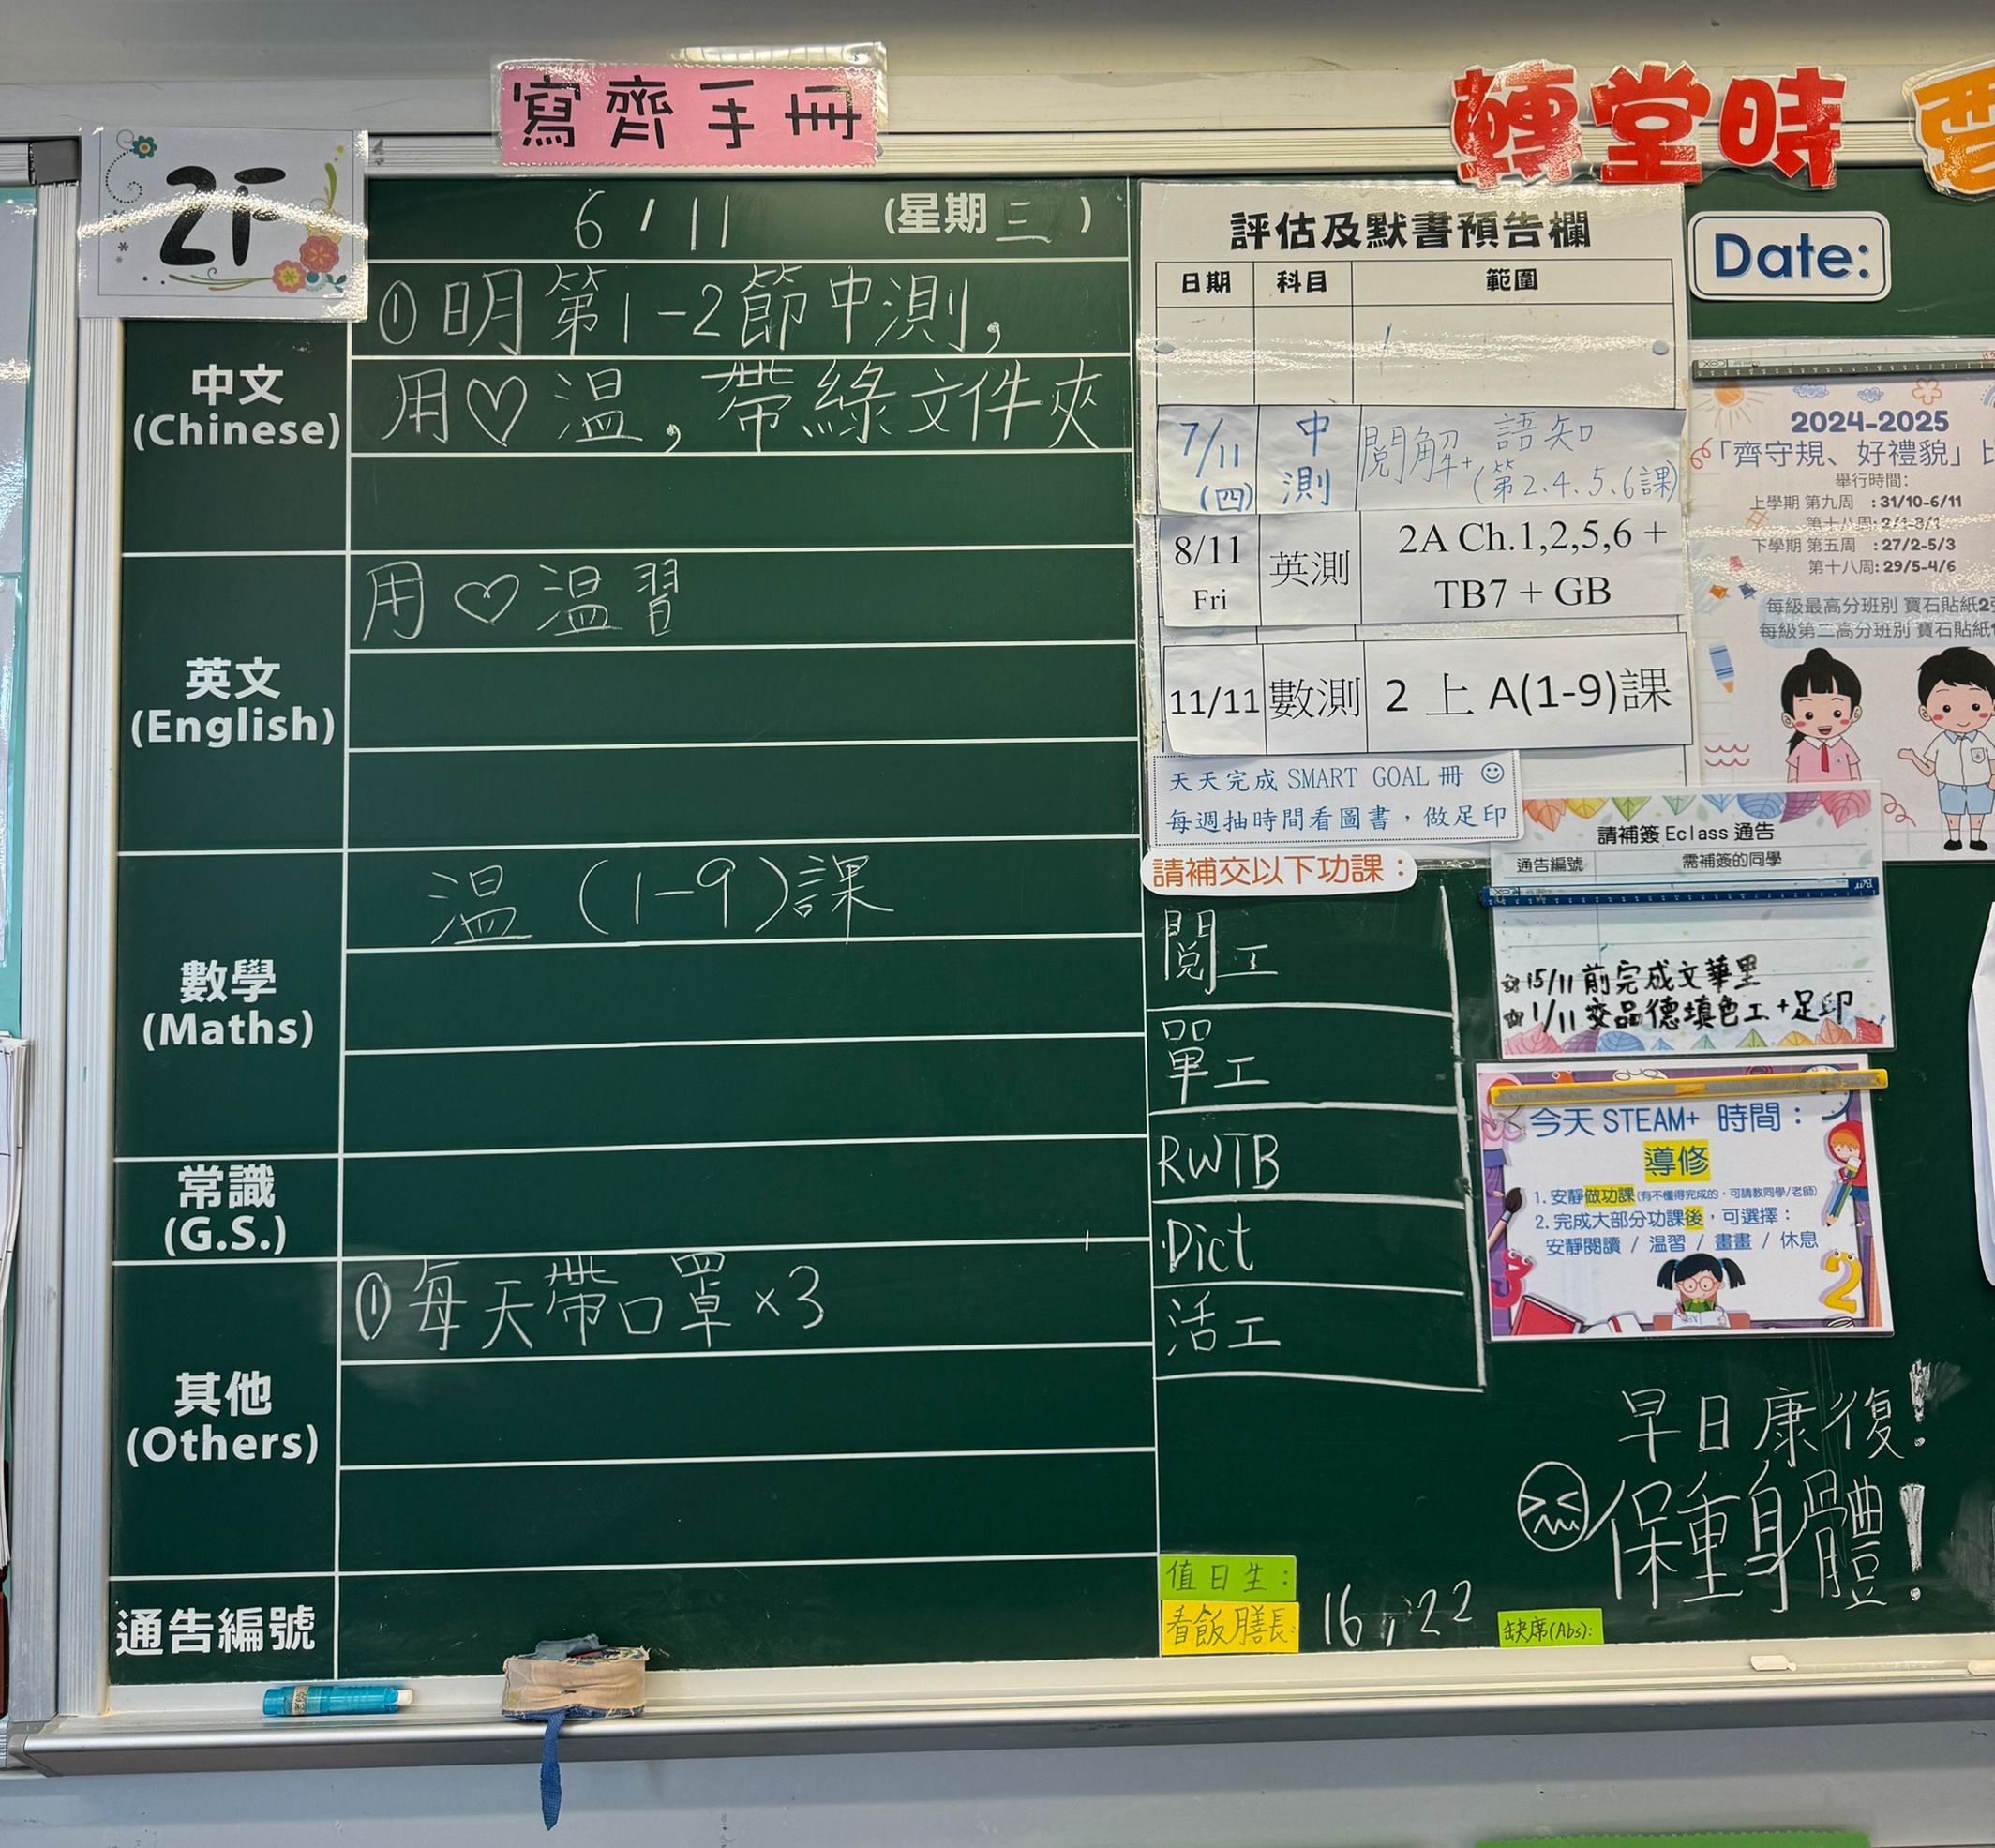 寫齊手冊
轉堂時
2F
6 / 11 (星期三)
中文
(Chinese)
①明第1-2節中測,
用♡溫,帶綠文件夾
英文
(English)
用♡溫習
數學
(Maths)
溫 (1-9)課
常識
(G.S.)
其他
(Others)
①每天帶口罩×3
通告編號
評估及默書預告欄
日期 科目 範圍
7/11 (四) 中測 閱解+語知 (第2.4.5.6課)
8/11 Fri 英測 2A Ch.1,2,5,6 +
TB7 + GB
11/11 數測 2 上 A(1-9)課
天天完成 SMART GOAL 冊 ☺
每週抽時間看圖書,做足印
請補交以下功課:
閱工
單工
RWTB
Dict
活工
值日生:
看飯膳長: 16, 22
缺席(Abs):
Date:
2024-2025
「齊守規、好禮貌」比
舉行時間:
上學期 第九周 : 31/10-6/11
第十八周: 2/1-8/1
下學期 第五周 : 27/2-5/3
第十八周: 29/5-4/6
每級最高分班別 寶石貼紙2
每級第二高分班別 寶石貼紙
請補簽 Eclass 通告
通告編號 需補簽的同學
☆15/11 前完成文華里
☆1/11 交品德填色工+足印
今天 STEAM+ 時間:
導修
1. 安靜做功課(有不懂得完成的,可請教同學/老師)
2. 完成大部分功課後,可選擇:
安靜閱讀 / 溫習 / 畫畫 / 休息
早日康復!
保重身體!